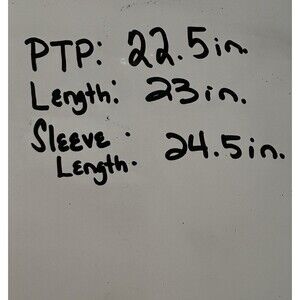 PTP: 22.5in.
Length: 23in.
Sleeve : 24.5in.
Length.